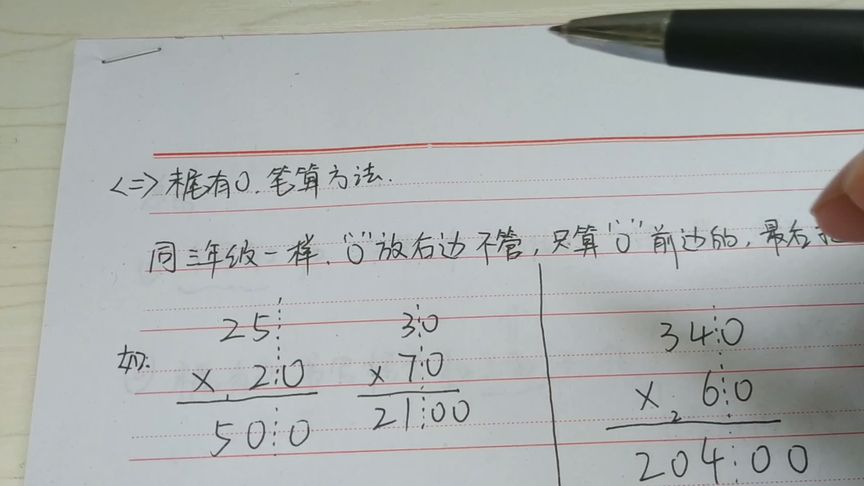 <二>末尾有0.笔算方法.
同三年级一样."0"放右边不管,只算"0"前边的,最后
如: 25 30 340
× 20 × 70 × 2 60
500 2100 20400